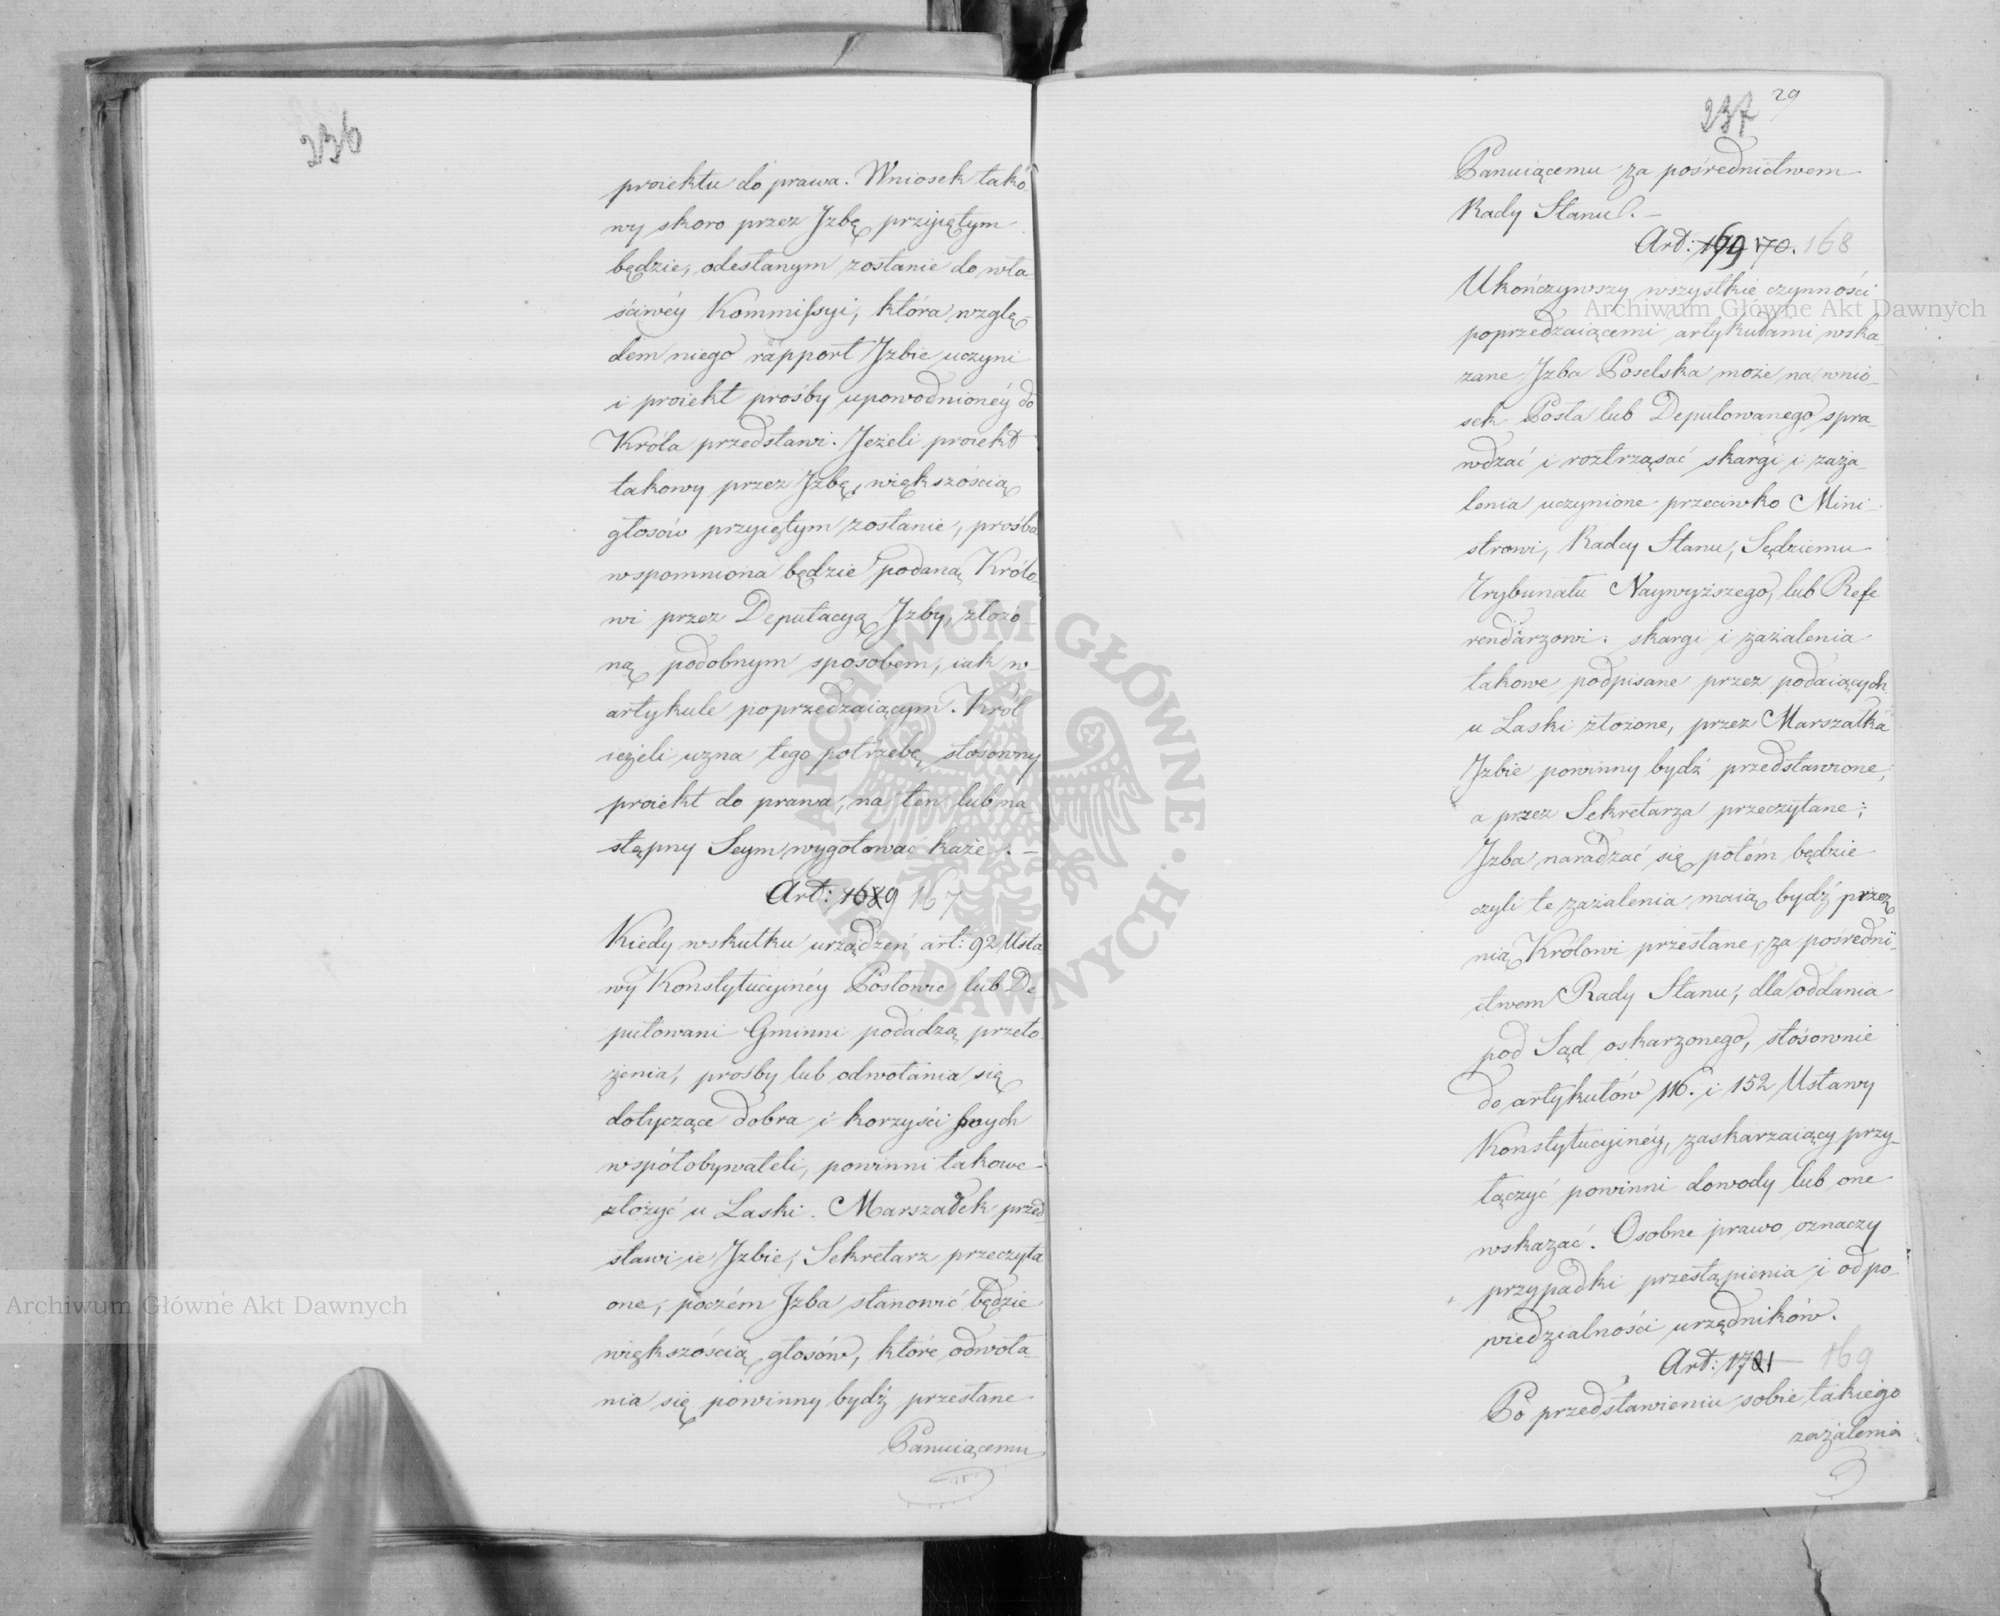 236
proiektu do prawa. Wniosek tako-
wy skoro przez Jzbę przyiętym
będzie, odesłanym zostanie do wła
ściwéy Kommissyi, która wzglę-
dem niego rapport Jzbie uczyni
i proiekt prośby upowodnionéy do
Króla przedstawi. Jeżeli proiekt
takowy przez Jzbę, większością
głosów przyiętym zostanie, prośba
wspomniona będzie podaną Królo-
wi przez Deputacyą Jzby, złożo-
ną podobnym sposobem, iak w
artykule poprzedzaiącym. Król
ieżeli uzna tego potrzebę, stosowny
proiekt do prawa, na ten lub na
stępny Seym, wygotować każe. —
Art: 1689 167
Kiedy wskutku urządzeń art: 92 Usta
wy Konstytucyinéy Posłowie lub De
putowani Gminni podadzą przeło
żenia, prośby lub odwołania się
dotyczące dobra i korzyści swych
współobywateli, powinni takowe
złożyć u Laski. Marszałek przed
stawi ie Jzbie, Sekretarz przeczyta
one, poczém Jzba stanowić będzie
większością głosów, które odwoła-
nia się powinny bydź przesłane
Panuiącemu
237 29
Panuiącemu za pośrednictwem
Rady Stanu. —
Art: 169 170. 168
Ukończywszy wszystkie czynności
poprzedzaiącemi artykułami wska
zane Jzba Poselska może na wnio-
sek Posła lub Deputowanego spra-
wdzać i roztrząsać skargi i zaża-
lenia uczynione przeciwko Mini-
strowi, Radcy Stanu, Sędziemu
Trybunału Naywyższego, lub Refe
rendarzowi: skargi i zażalenia
takowe podpisane przez podaiących
u Laski złożone, przez Marszałka
Jzbie powinny bydź przedstawione,
a przez Sekretarza przeczytane;
Jzba naradzać się potém będzie
czyli te zażalenia maią bydź przez
nią Królowi przesłane, za pośredni-
ctwem Rady Stanu, dla oddania
pod Sąd oskarżonego, stósownie
do artykułów 116. i 152 Ustawy
Konstytucyinéy, zaskarzaiący przy-
łączyć powinni dowody lub one
wskazać. Osobne prawo oznaczy
przypadki przestąpienia i odpo-
wiedzialności urzędników.
Art: 1701 169
Po przedstawieniu sobie takiego
zażalenia
Archiwum Główne Akt Dawnych
Archiwum Główne Akt Dawnych
ARCHIWUM GŁÓWNE · AKT DAWNYCH ·